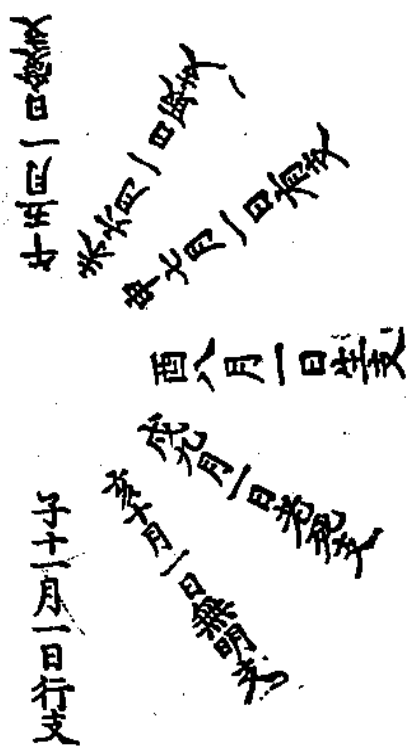 午五月一日愛支
未六月一日取支
申七月一日有支
酉八月一日生支
戌九月一日老死支
亥十月一日無明支
子十一月一日行支